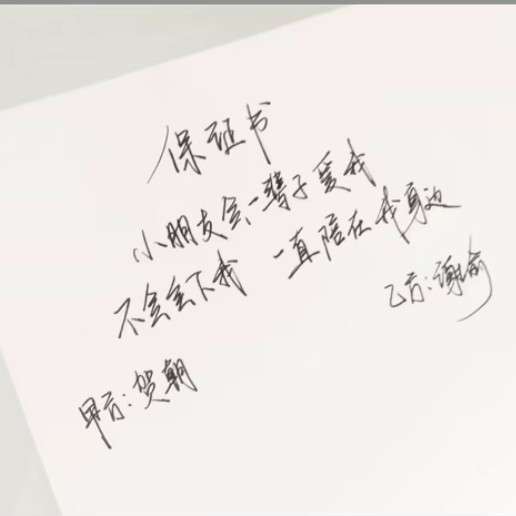 保证书
小朋友会一辈子爱我
不会丢下我 一直陪在我身边
乙方:谢俞
甲方:贺朝